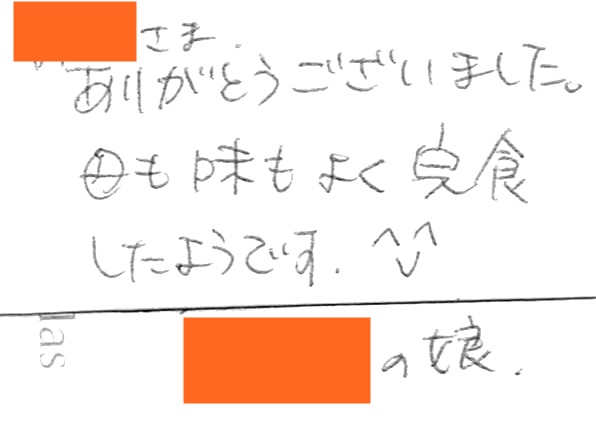 さま.
ありがとうございました。
母も味もよく完食
したようです. ^^
las
の娘.